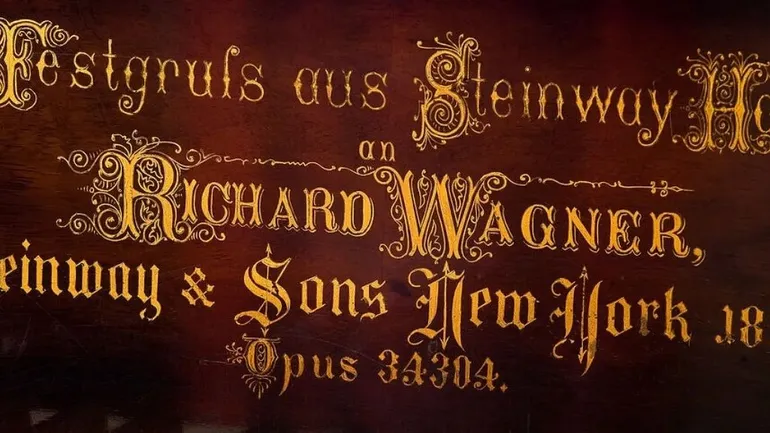 Festgruſs aus Steinway Ha
an
RICHARD WAGNER,
einway & Sons New York 18
Opus 34304.